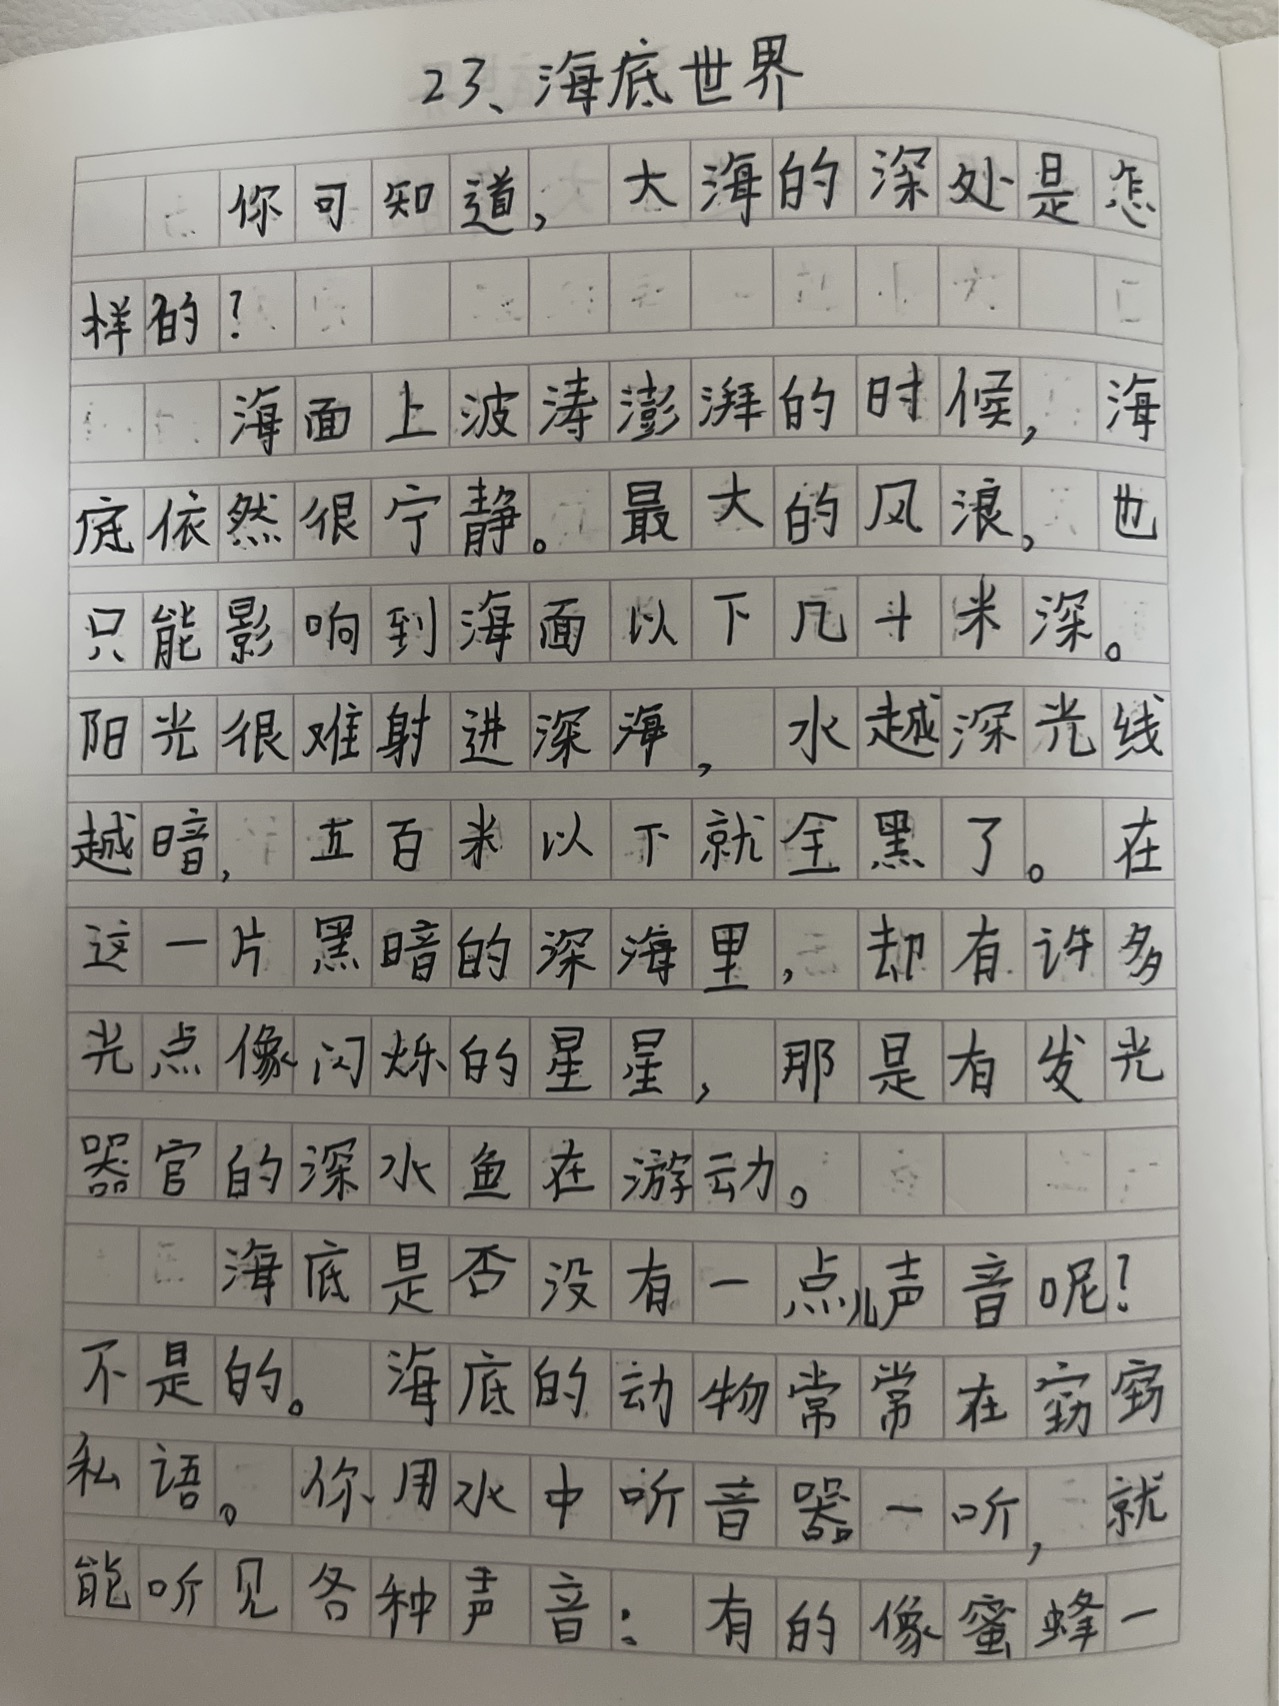 23、海底世界
你可知道，大海的深处是怎
样的？
海面上波涛澎湃的时候，海
底依然很宁静。最大的风浪，也
只能影响到海面以下几十米深。
阳光很难射进深海，水越深光线
越暗，五百米以下就全黑了。在
这一片黑暗的深海里，却有许多
光点像闪烁的星星，那是有发光
器官的深水鱼在游动。
海底是否没有一点儿声音呢？
不是的。海底的动物常常在窃窃
私语。你用水中听音器一听，就
能听见各种声音：有的像蜜蜂一